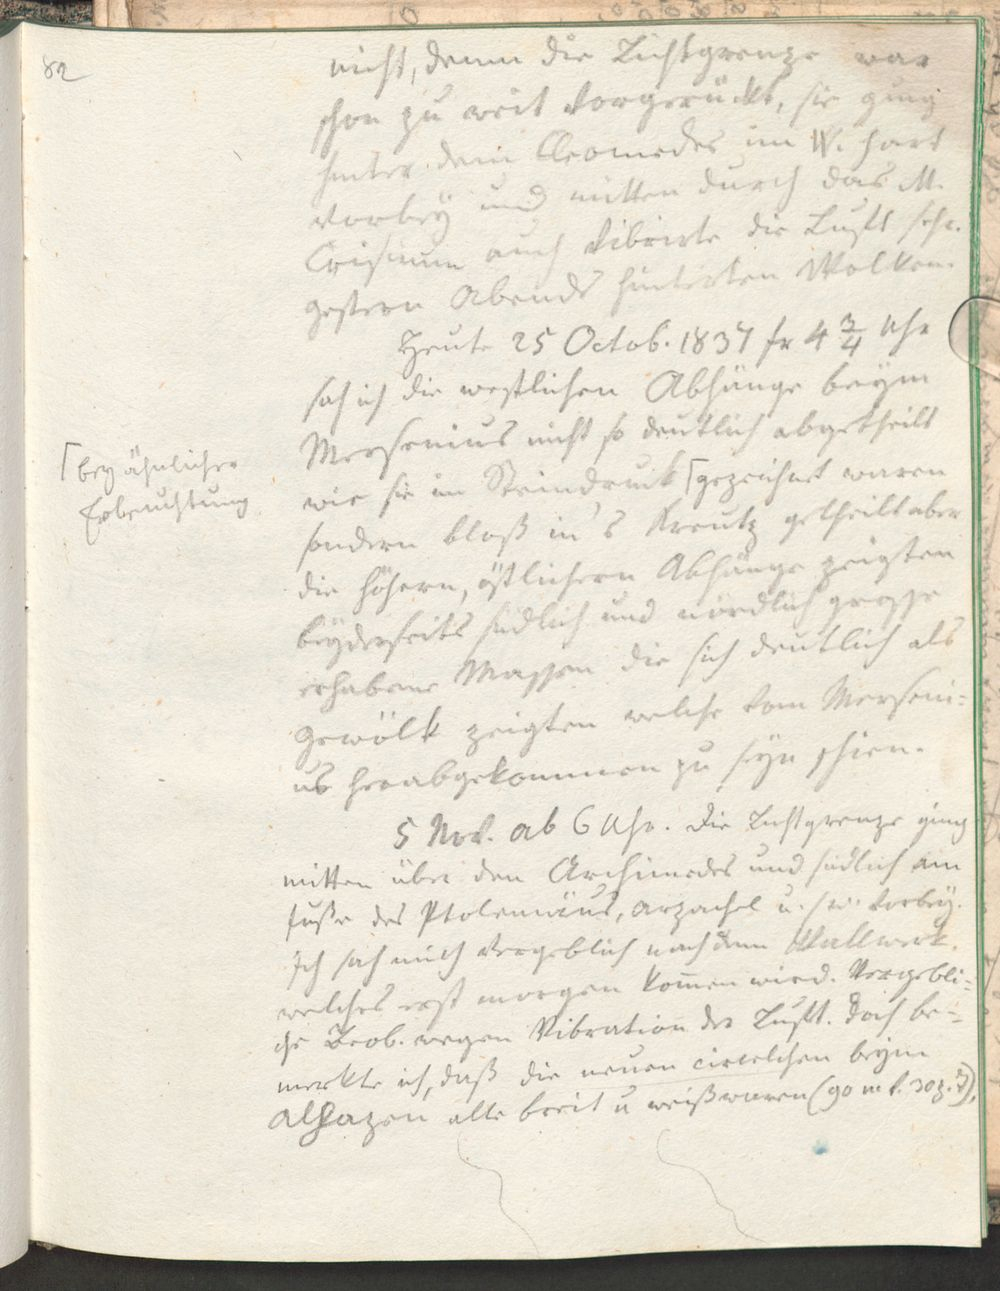 82
nicht, denn die Lichtgrenze war
schon zu weit vorgerückt, sie ging
hinter dem Cleomedes im W. hart
vorbey und mitten durch das M.
Crisium auch vibrirte die Luft sehr.
gestern Abends hinterten Wolken.
Heute 25 Octob. 1837 fr 4 3/4 Uhr
sah ich die westlichen Abhänge beym
Mersenius nicht so deutlich abgetheilt
wie sie im Steindruck ⌈gezeichnet waren
⌈bey ähnlicher
Erleuchtung
sondern bloß in's Kreutz getheilt aber
die höhern, östlichern Abhänge zeigten
beyderseits südlich und nördlich grosse
erhabene Massen die sich deutlich als
Gewölk zeigten welche vom Merseni=
us herabgekommen zu seyn schien.
5 Nov. ab 6 Uhr. die Lichtgrenze ging
mitten über den Archimedes und südlich am
Fuße des Ptolemäus, Arzachel u. s.w. vorbey.
Ich sah mich vergeblich nach dem Wallwerk
welches erst morgen kommen wird. Vergebli=
che Beob. wegen Vibration der Luft. Doch be=
merkte ich, daß die neuen circelchen beym
Alhazen alle breit u weiß waren (90 m f. 30z.